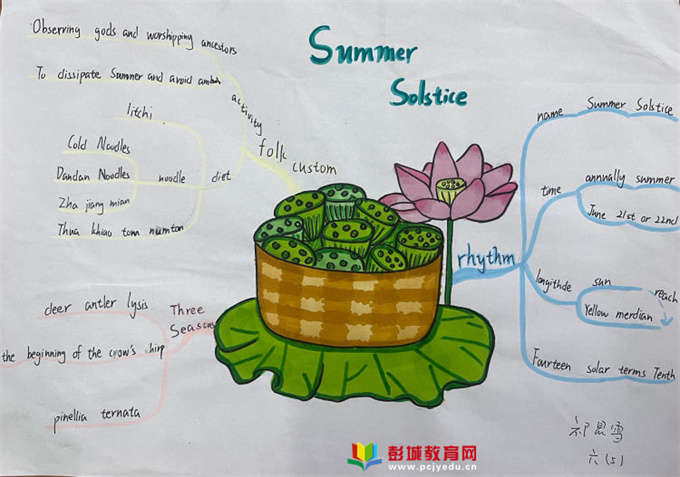 Summer
Solstice
Observing gods and worshipping ancestors
To dissipate Summer and avoid
activity
folk
custom
litchi
Cold Noodles
Dandan Noodles
Zha jiang mian
Thua khiao tom numton
noodle
diet
Three
Seasons
deer antler lysis
the beginning of the crow's hirp
pinellia ternata
rhythm
name
Summer Solstice
time
annually summer
June 21st or 22nd
longithde
sun
reach
Yellow merdian
Fourteen solar terms Tenth
六(5)
彭城教育网
www.pcjyedu.cn